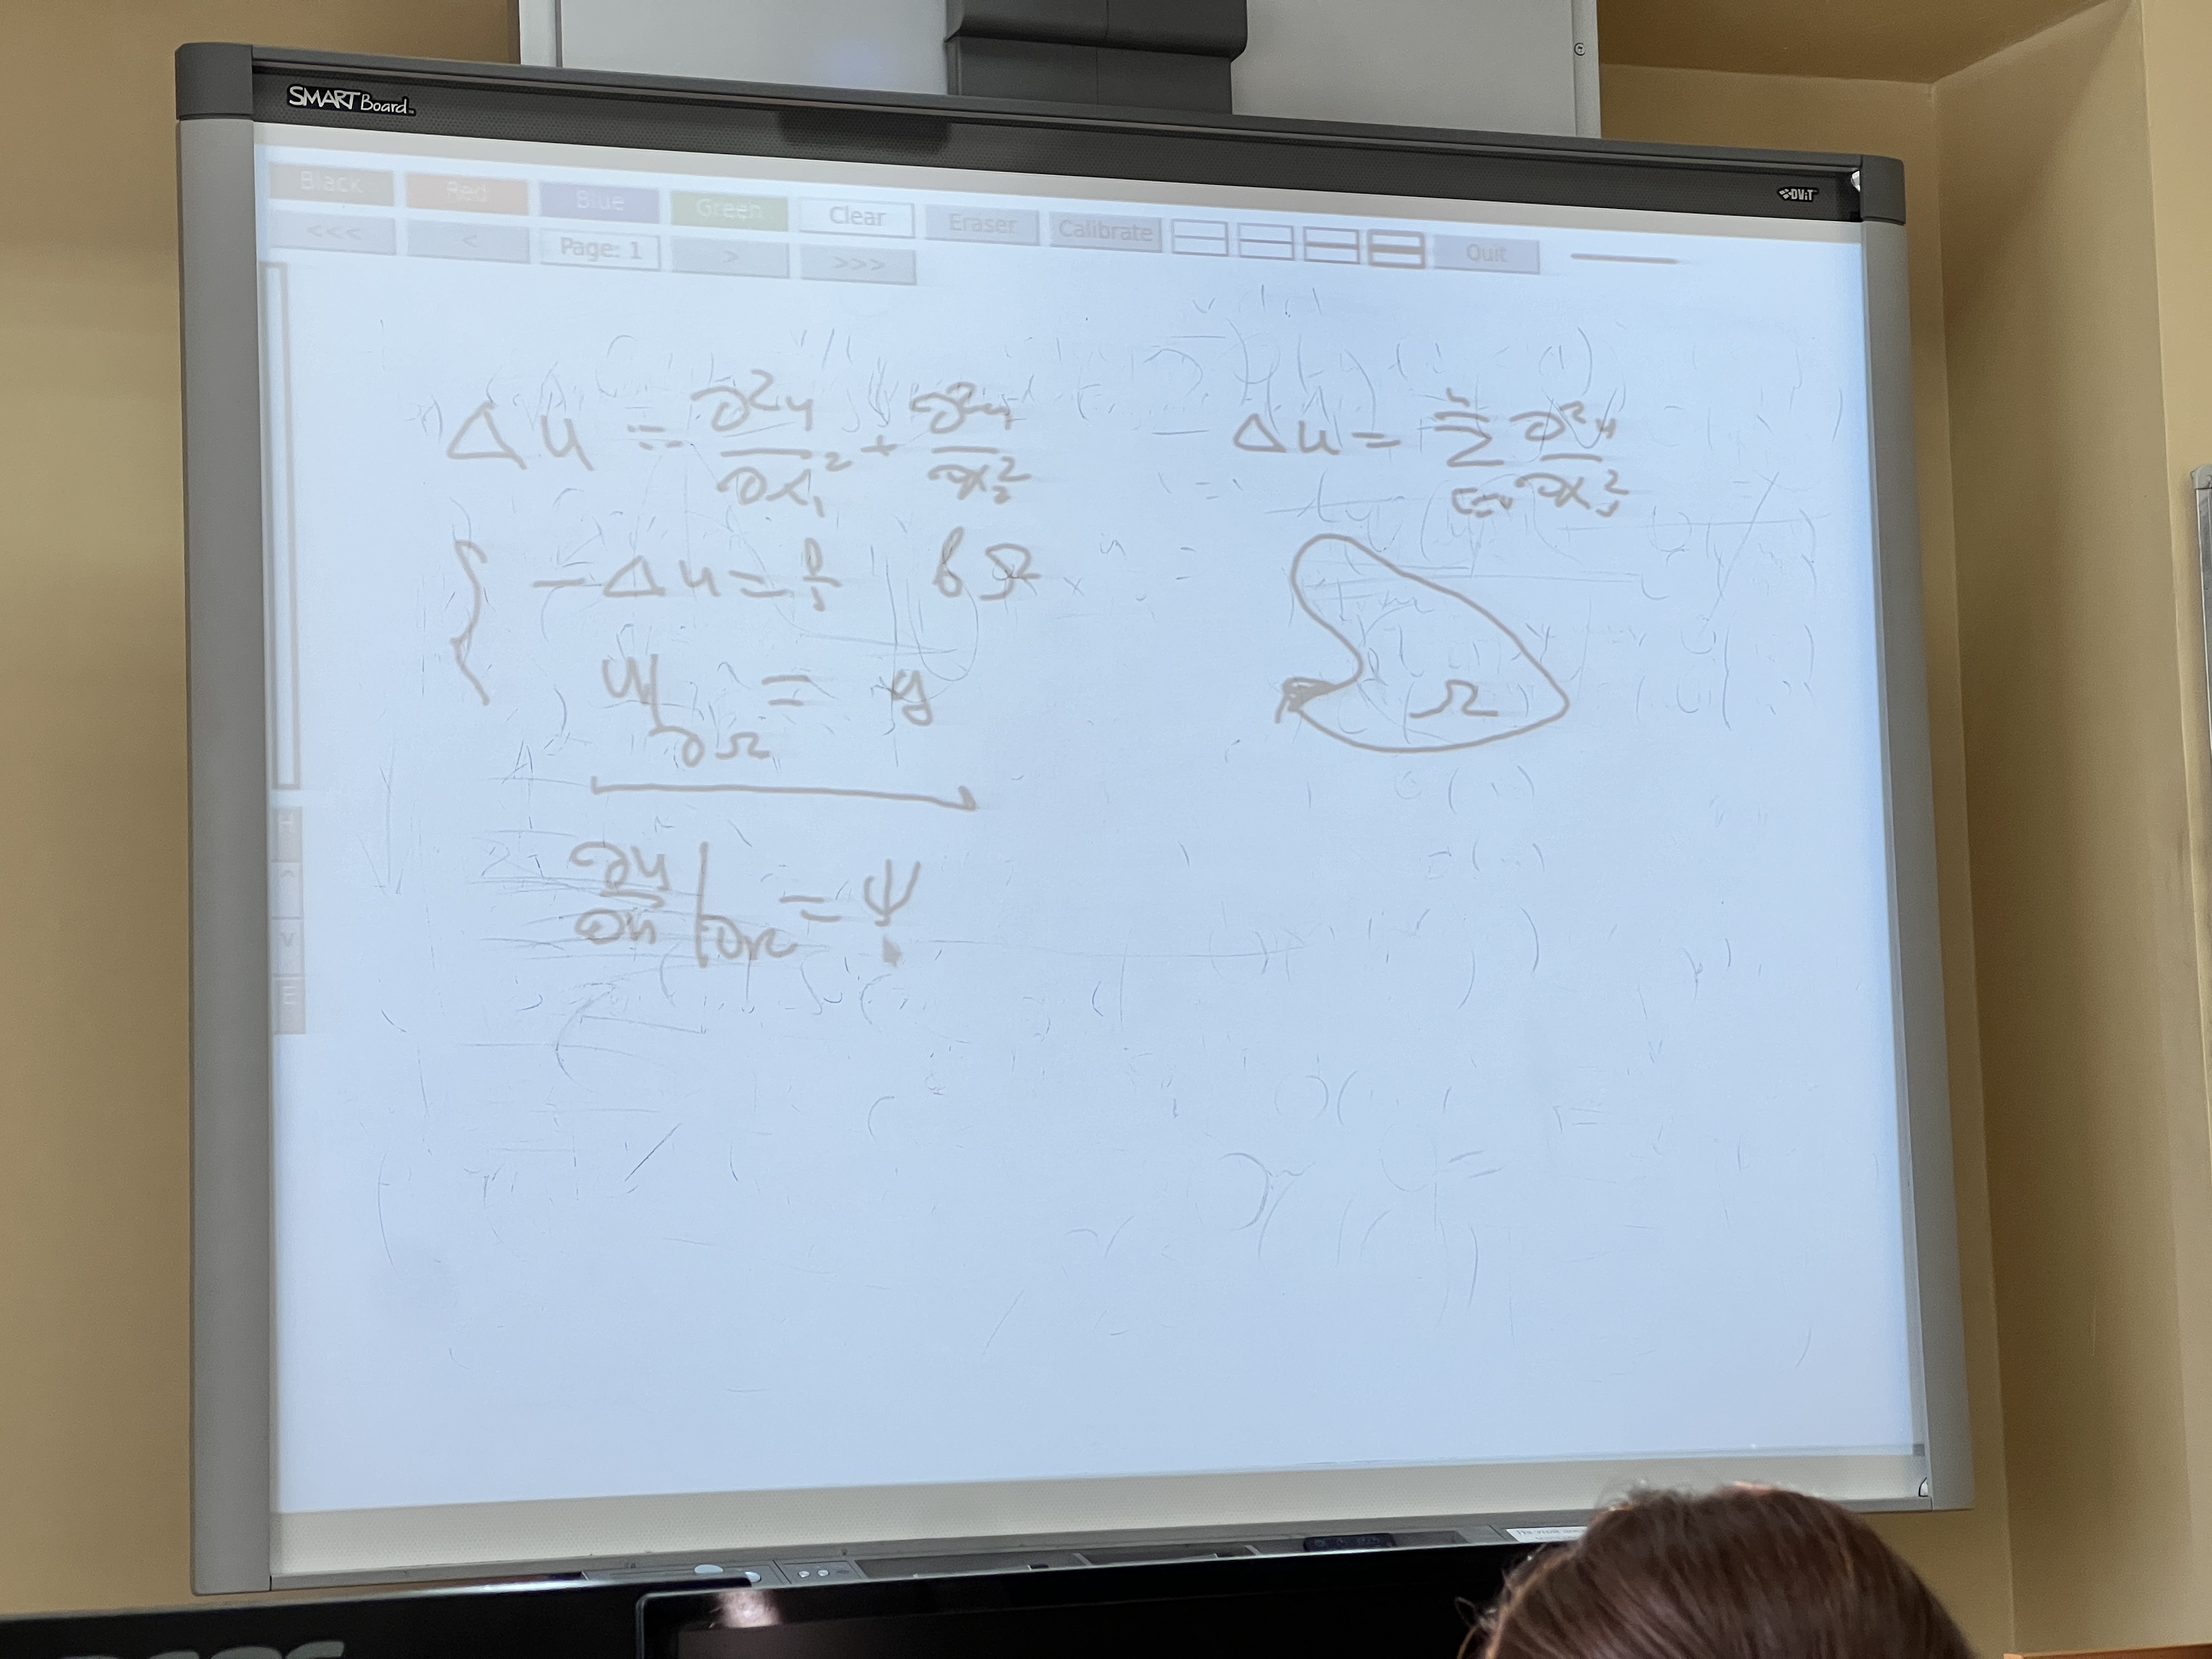 SMART Board
DViT
Black Red Blue Green Clear Eraser Calibrate Quit
<<< < Page: 1 > >>>
Δu = ∂²u/∂x₁² + ∂²u/∂x₂²
Δu = Σ ∂²u/∂x²
{ -Δu = f в Ω
u|∂Ω = g
Ω
∂u/∂n |∂Ω = ψ
H
^
v
E